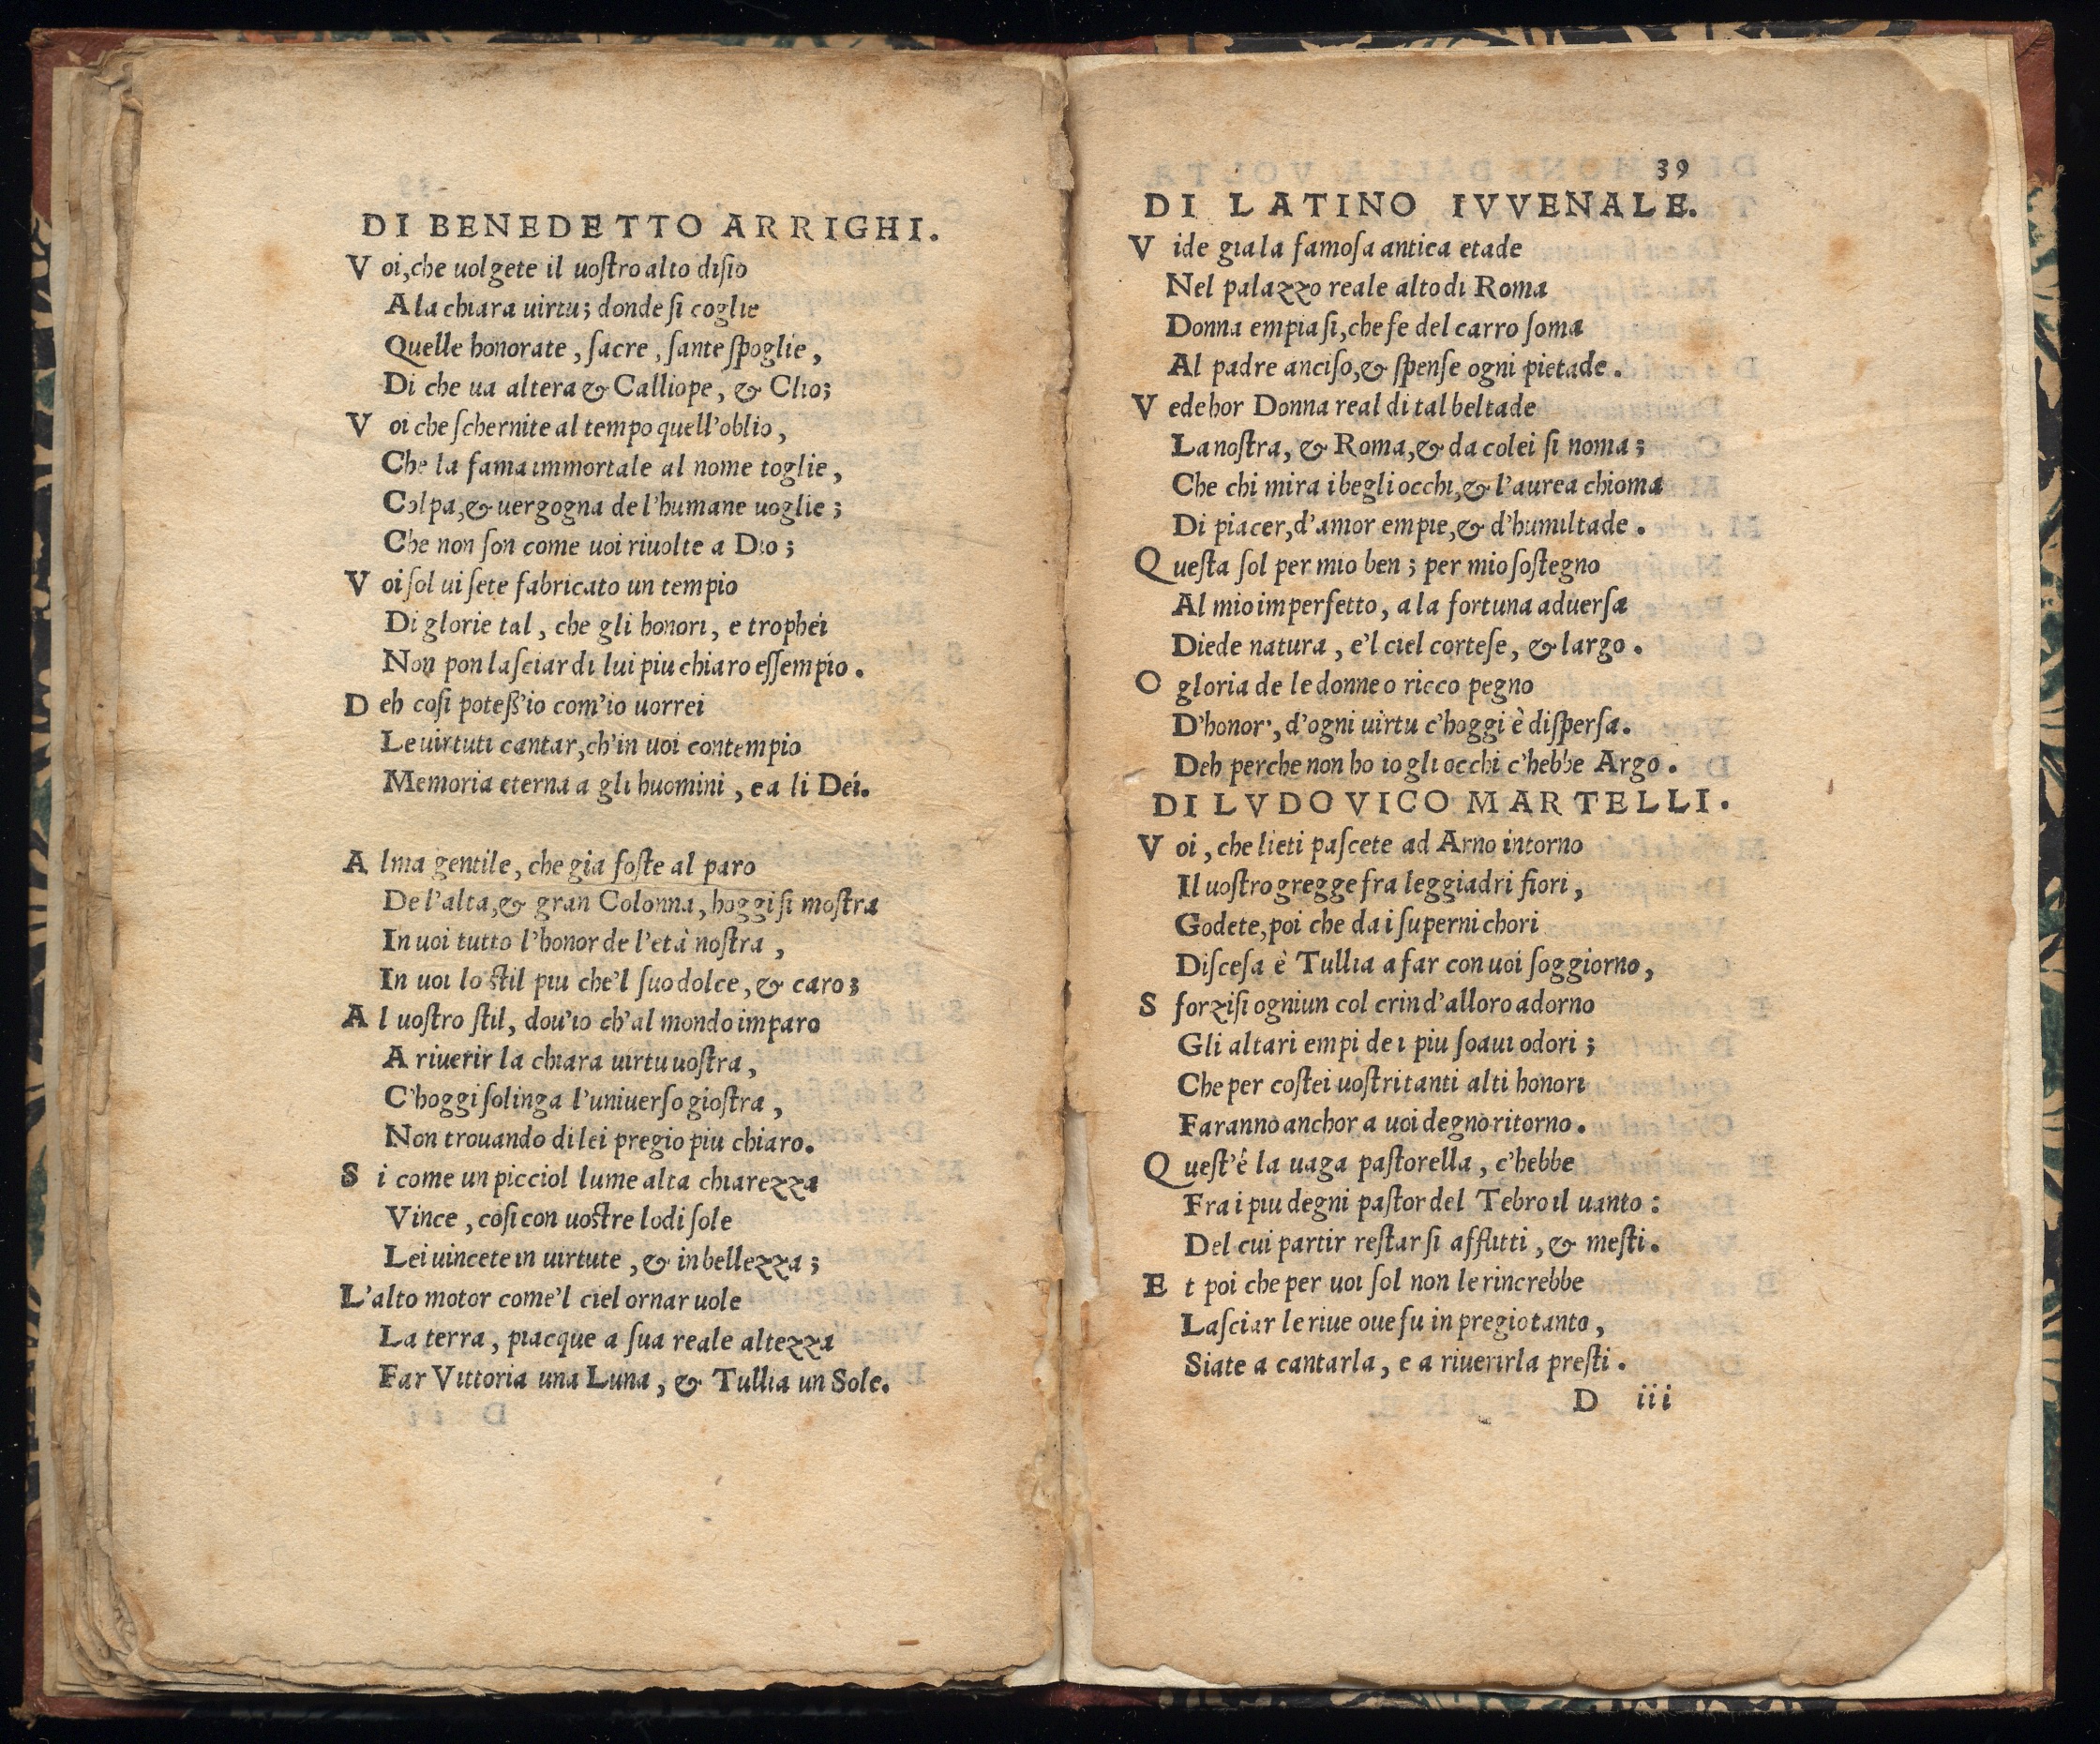 DI BENEDETTO ARRIGHI.
Voi, che uolgete il uoſtro alto diſio
A la chiara uirtu; donde ſi coglie
Quelle honorate, ſacre, ſante ſpoglie,
Di che ua altera & Calliope, & Clio;
Voi che ſchernite al tempo quell'oblio,
Che la fama immortale al nome toglie,
Colpa, & uergogna de l'humane uoglie;
Che non ſon come uoi riuolte a Dio;
Voi ſol ui ſete fabricato un tempio
Di glorie tal, che gli honori, e trophéi
Non pon laſciar di lui piu chiaro eſſempio.
Deh coſi poteß'io com'io uorrei
Le uirtuti cantar, ch'in uoi contempio
Memoria eterna a gli huomini, e a li Déi.
Alma gentile, che gia foſte al paro
De l'alta, & gran Colonna, hoggi ſi moſtra
In uoi tutto l'honor de l'età noſtra,
In uoi lo ſtil piu che'l ſuo dolce, & caro;
Al uoſtro ſtil, dou'io ch'al mondo imparo
A riuerir la chiara uirtu uoſtra,
C'hoggi ſolinga l'uniuerſo gioſtra,
Non trouando di lei pregio piu chiaro.
Si come un picciol lume alta chiarezza
Vince, coſi con uoſtre lodi ſole
Lei uincete in uirtute, & in bellezza;
L'alto motor come'l ciel ornar uole
La terra, piacque a ſua reale altezza
Far Vittoria una Luna, & Tullia un Sole.
39
DI LATINO IVVENALE.
Vide gia la famoſa antica etade
Nel palazzo reale alto di Roma
Donna empia ſi, che fe del carro ſoma
Al padre anciſo, & ſpenſe ogni pietade.
Vede hor Donna real di tal beltade
La noſtra, & Roma, & da colei ſi noma;
Che chi mira i begli occhi, & l'aurea chioma
Di piacer, d'amor empie, & d'humiltade.
Queſta ſol per mio ben; per mio ſoſtegno
Al mio imperfetto, a la fortuna aduerſa
Diede natura, e'l ciel corteſe, & largo.
O gloria de le donne o ricco pegno
D'honor', d'ogni uirtu c'hoggi è diſperſa.
Deh perche non ho io gli occhi c'hebbe Argo.
DI LVDOVICO MARTELLI.
Voi, che lieti paſcete ad Arno intorno
Il uoſtro gregge fra leggiadri fiori,
Godete, poi che da i ſuperni chori
Diſceſa è Tullia a far con uoi ſoggiorno,
Sforziſi ogniun col crin d'alloro adorno
Gli altari empi de i piu ſoaui odori;
Che per coſtei uoſtri tanti alti honori
Faranno anchor a uoi degno ritorno.
Queſt'é la uaga paſtorella, c'hebbe
Fra i piu degni paſtor del Tebro il uanto:
Del cui partir reſtar ſi afflitti, & meſti.
Et poi che per uoi ſol non le rincrebbe
Laſciar le riue oue fu in pregio tanto,
Siate a cantarla, e a riuerirla preſti.
D iii